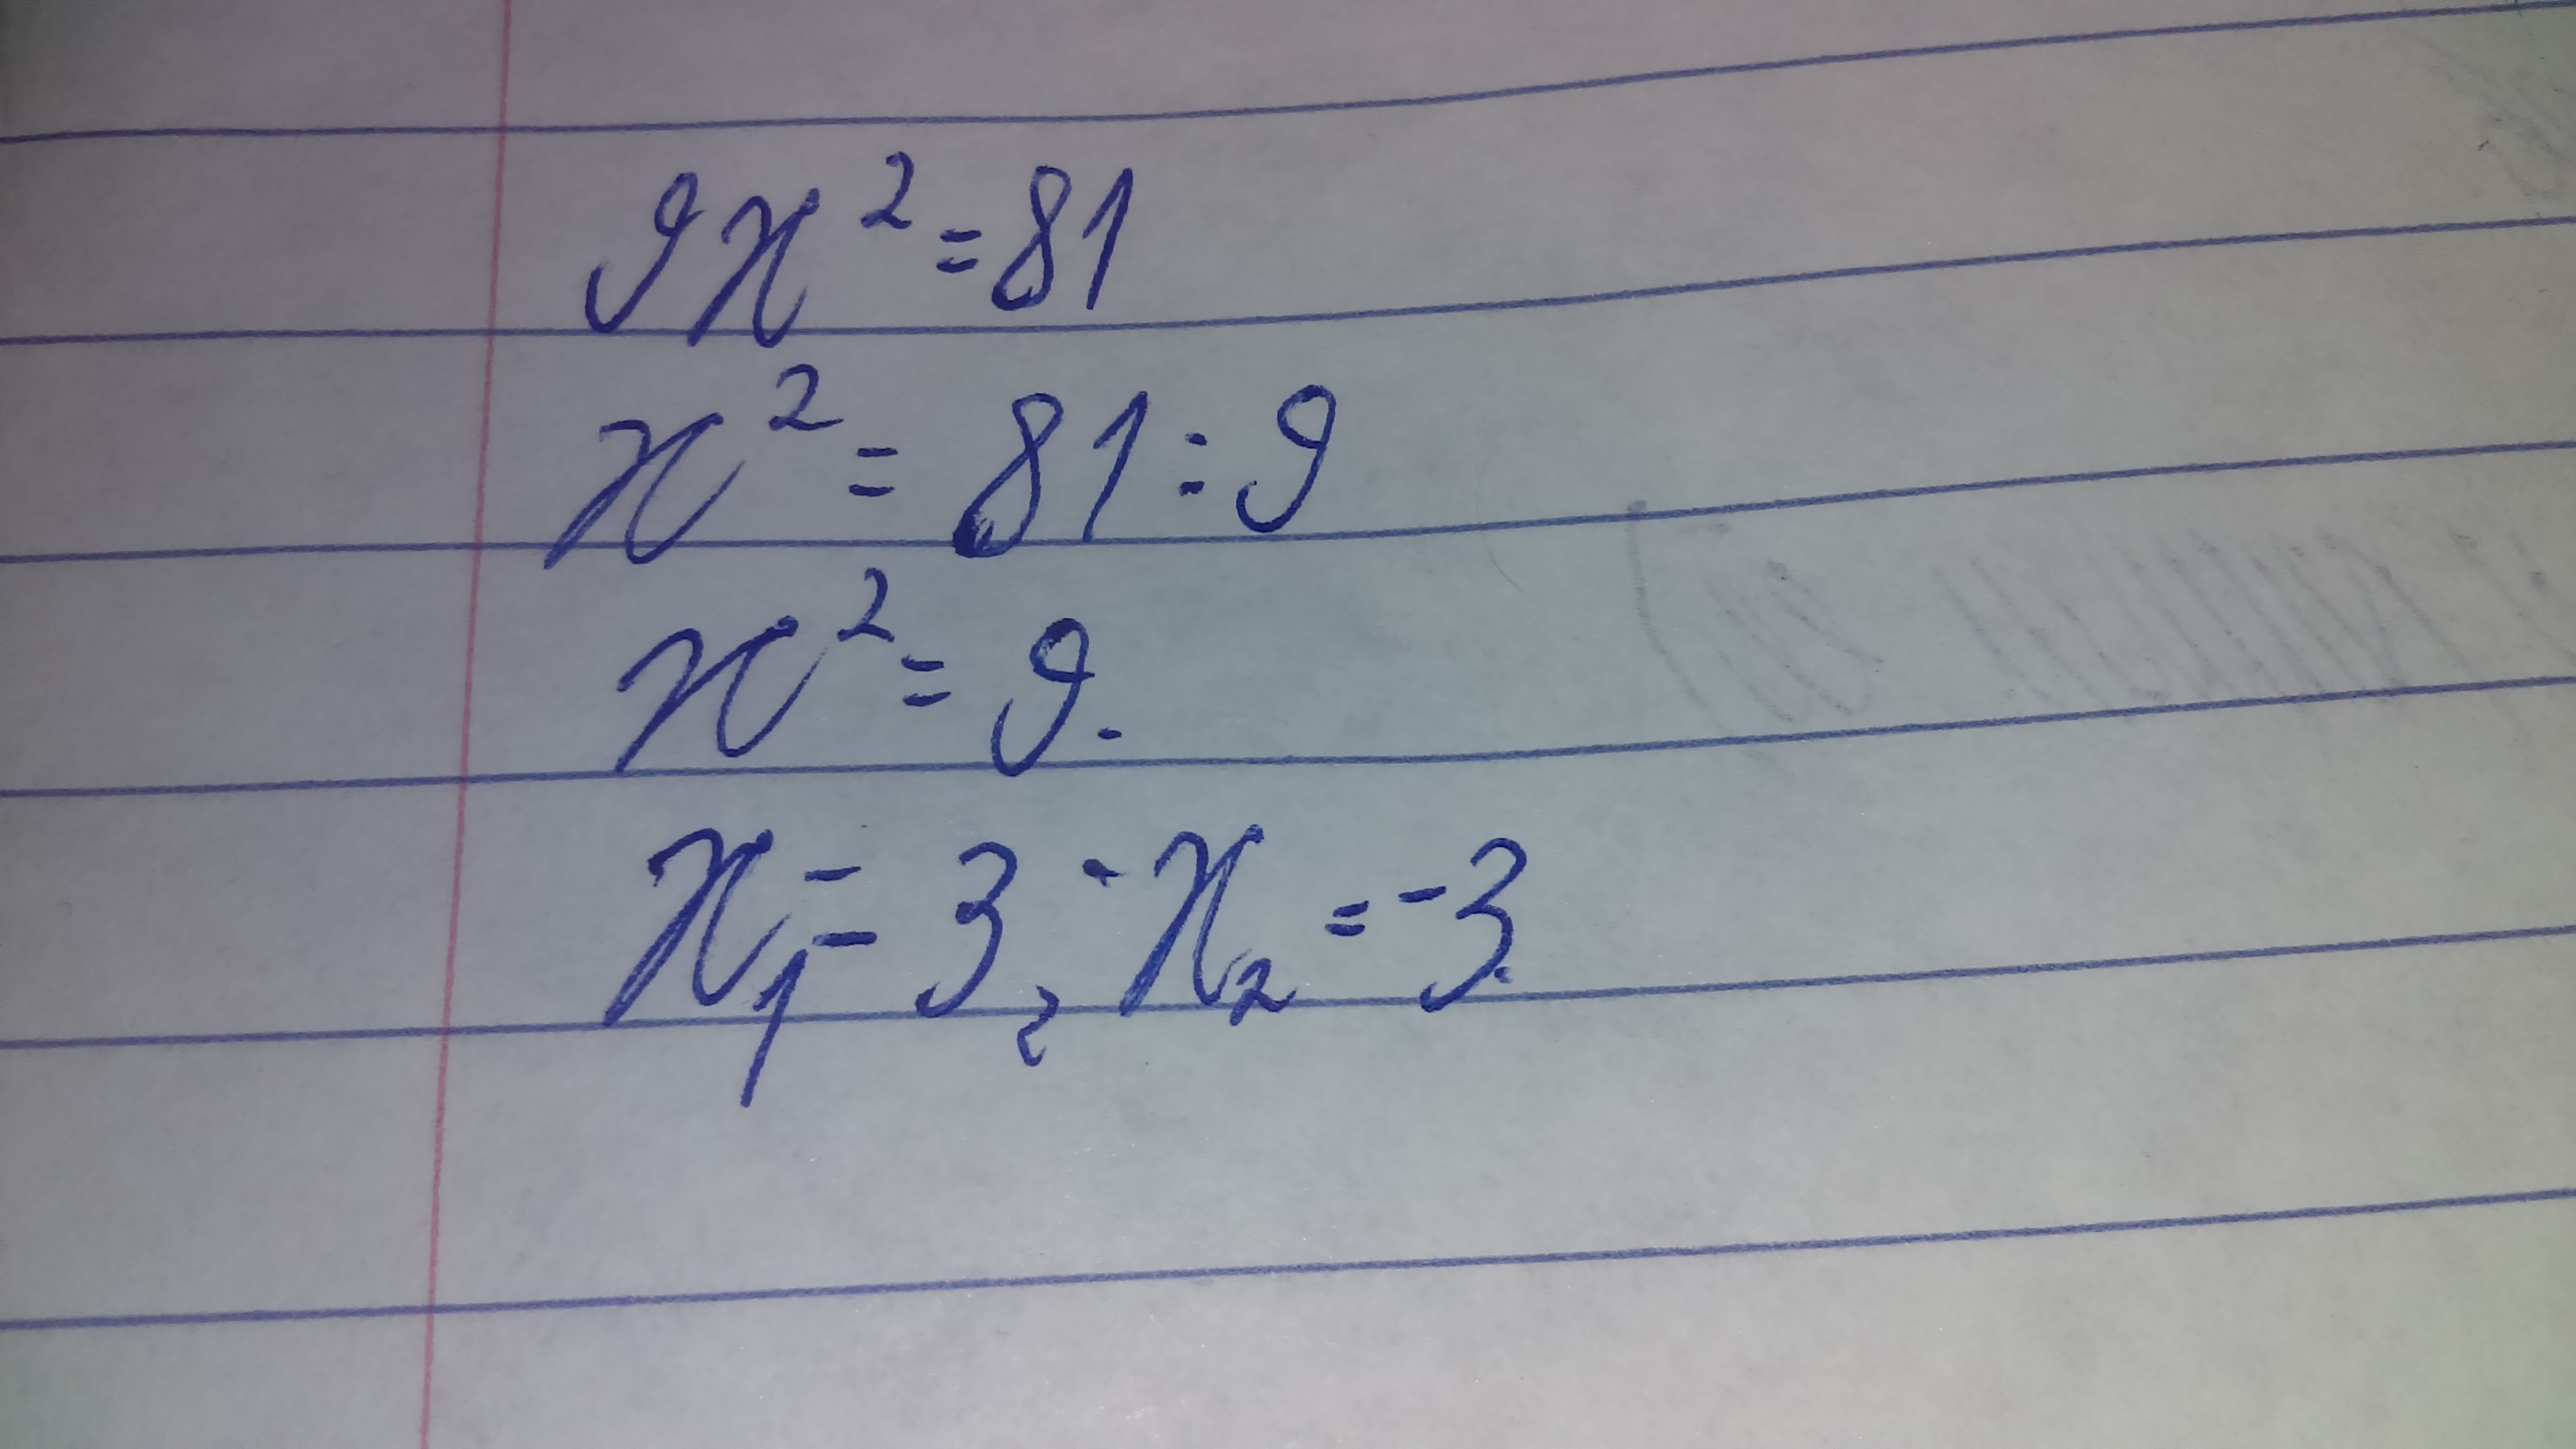 9x² = 81
x² = 81 : 9
x² = 9.
x₁ = 3, x₂ = -3.